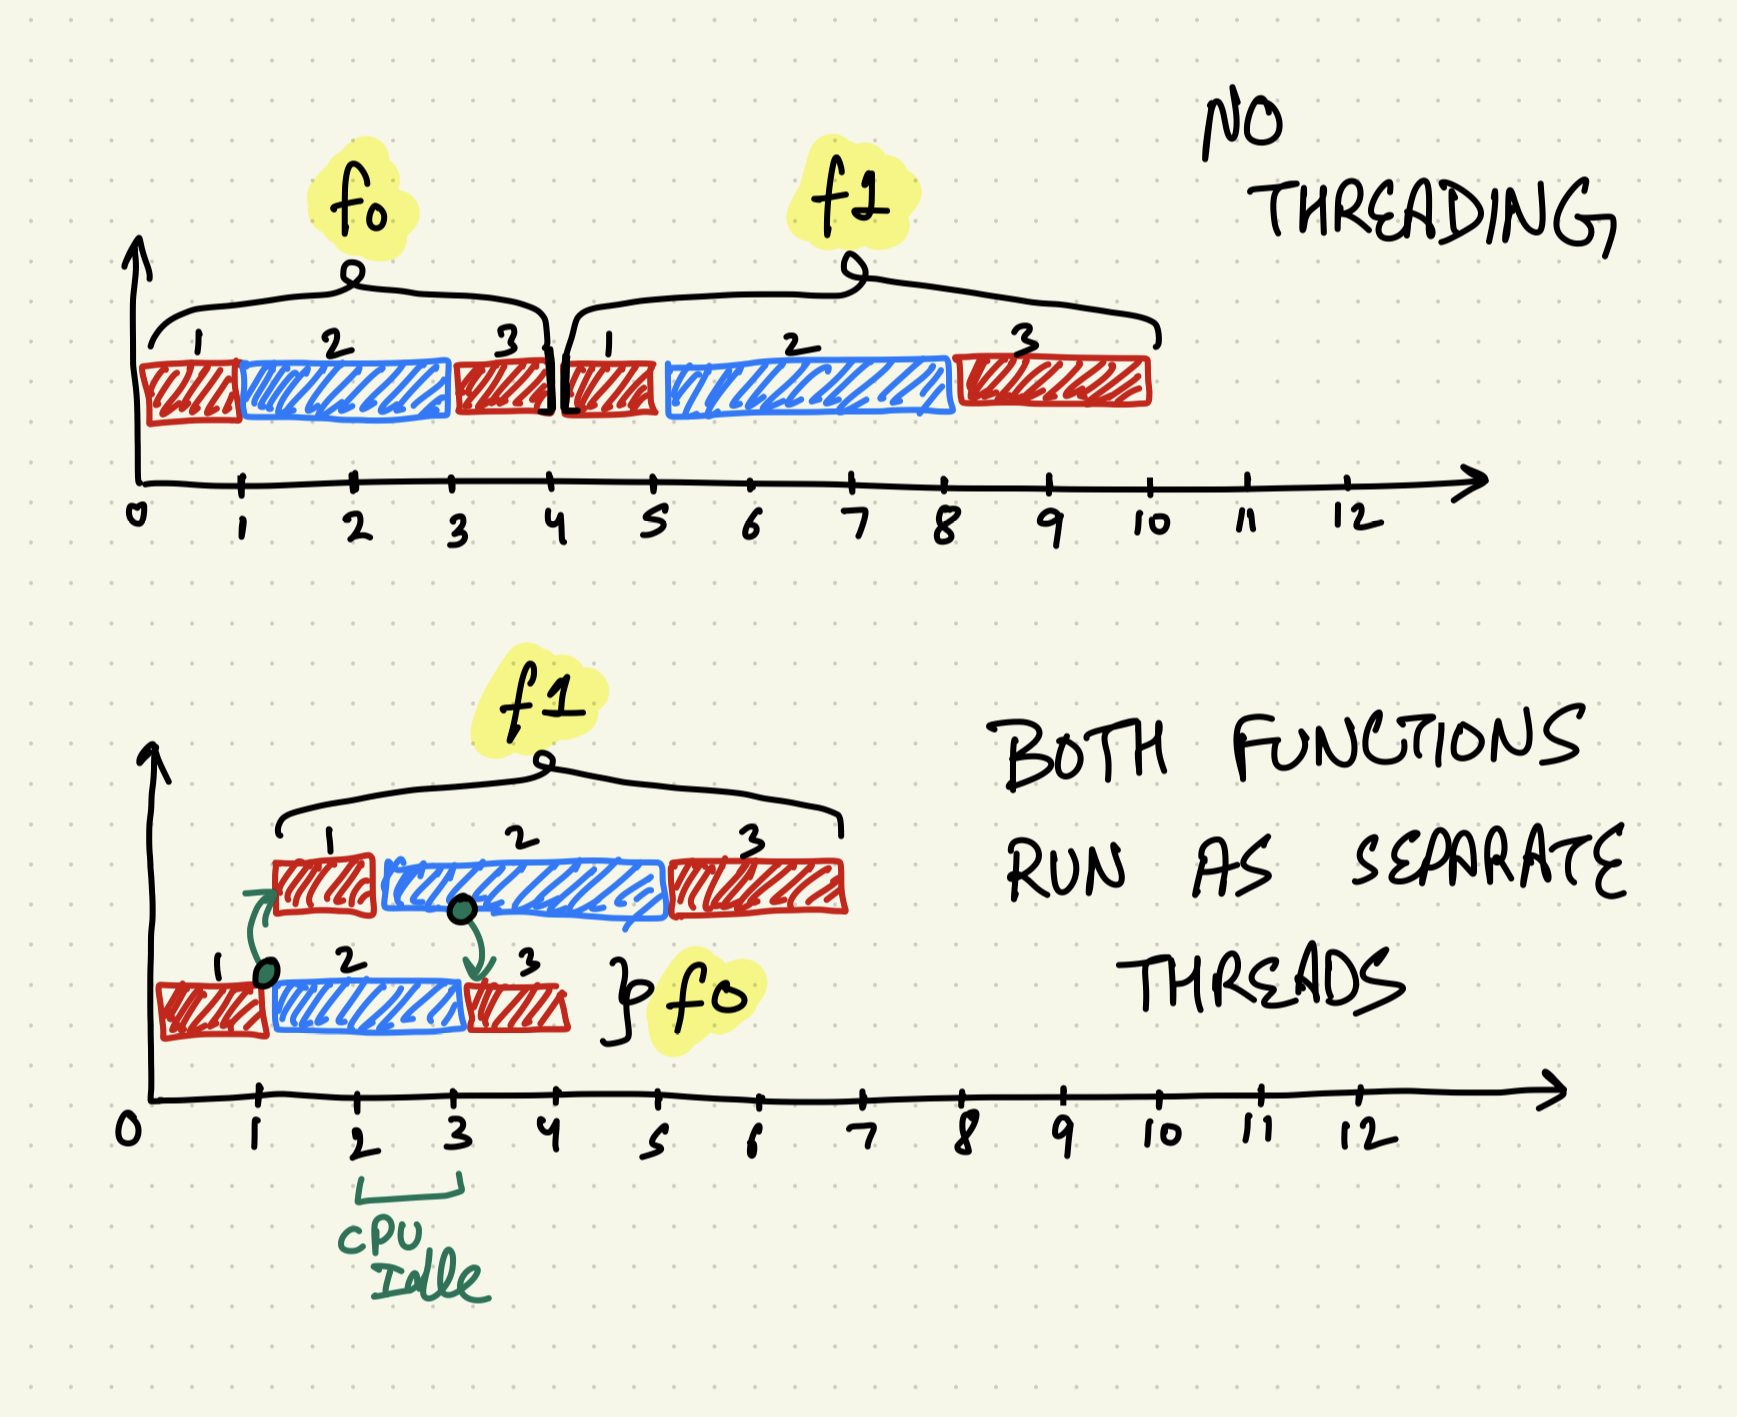 NO
THREADING
f0 f1
1 2 3 1 2 3
0 1 2 3 4 5 6 7 8 9 10 11 12
f1
BOTH FUNCTIONS
1 2 3
RUN AS SEPARATE
1 2 3 f0
THREADS
0 1 2 3 4 5 6 7 8 9 10 11 12
CPU
Idle